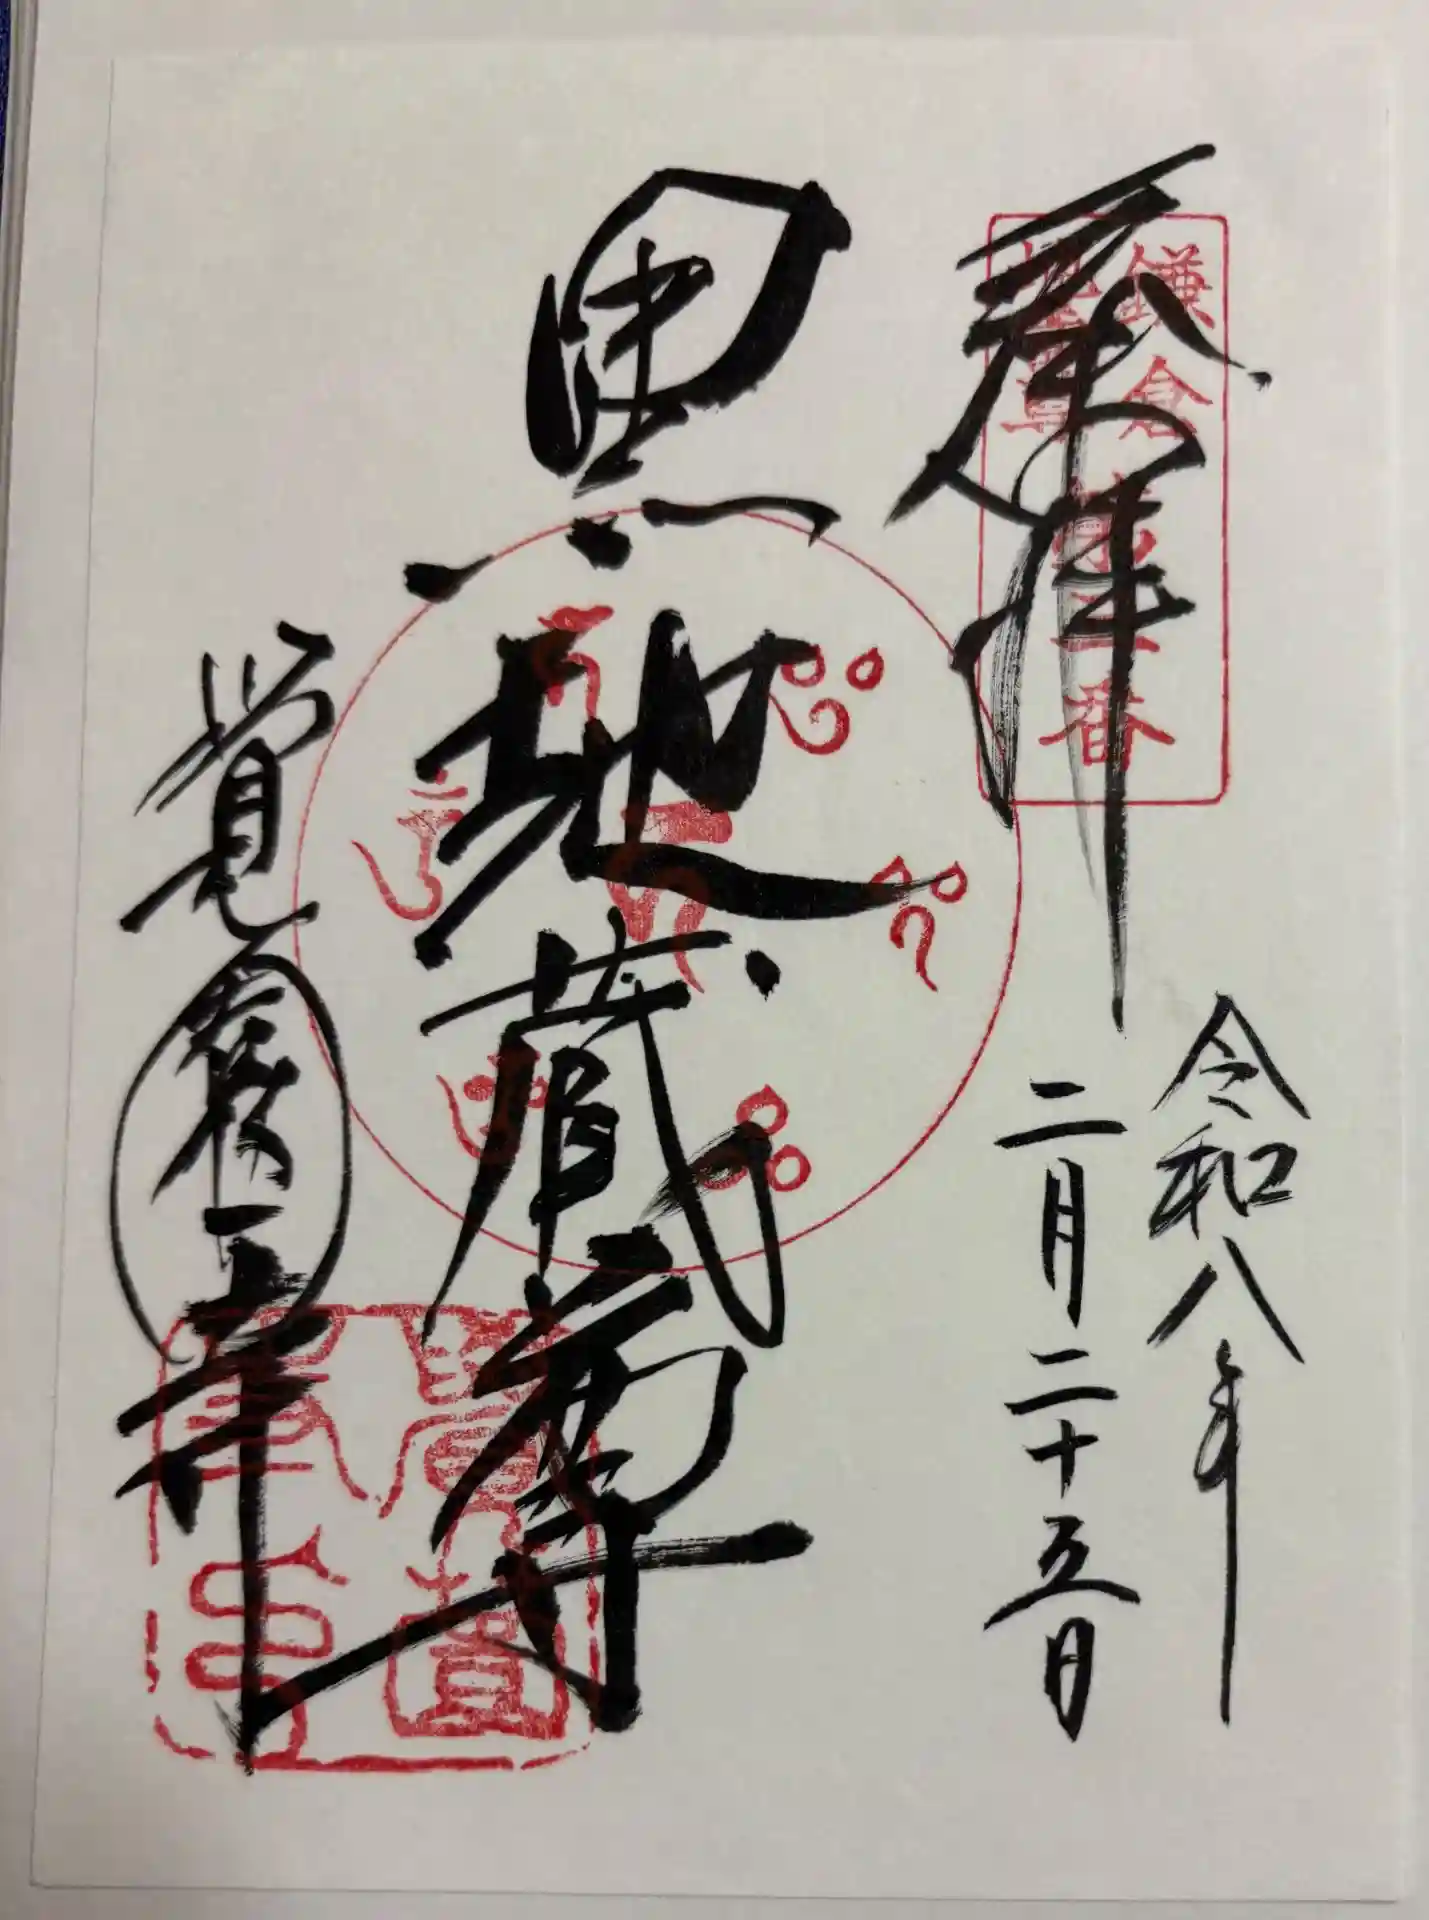 奉拝
鎌倉
地蔵尊
番
令和八年
二月二十五日
黒地蔵尊
覚園寺